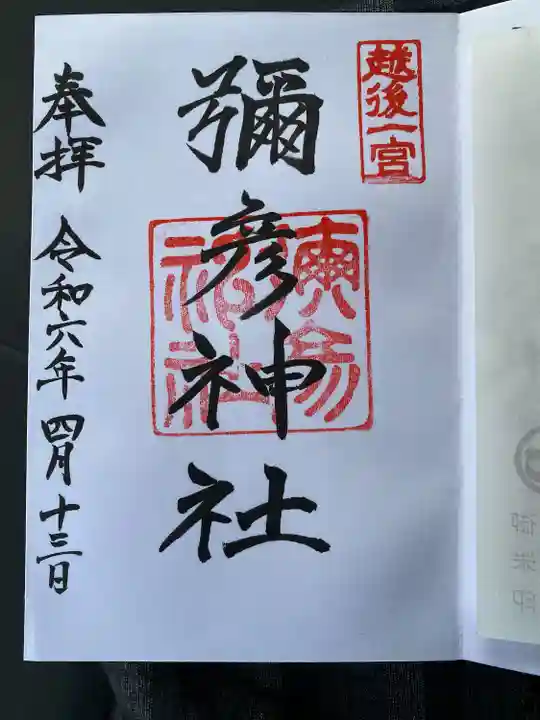 越後一宮
彌彦神社
奉拝
令和六年四月十三日
御朱印